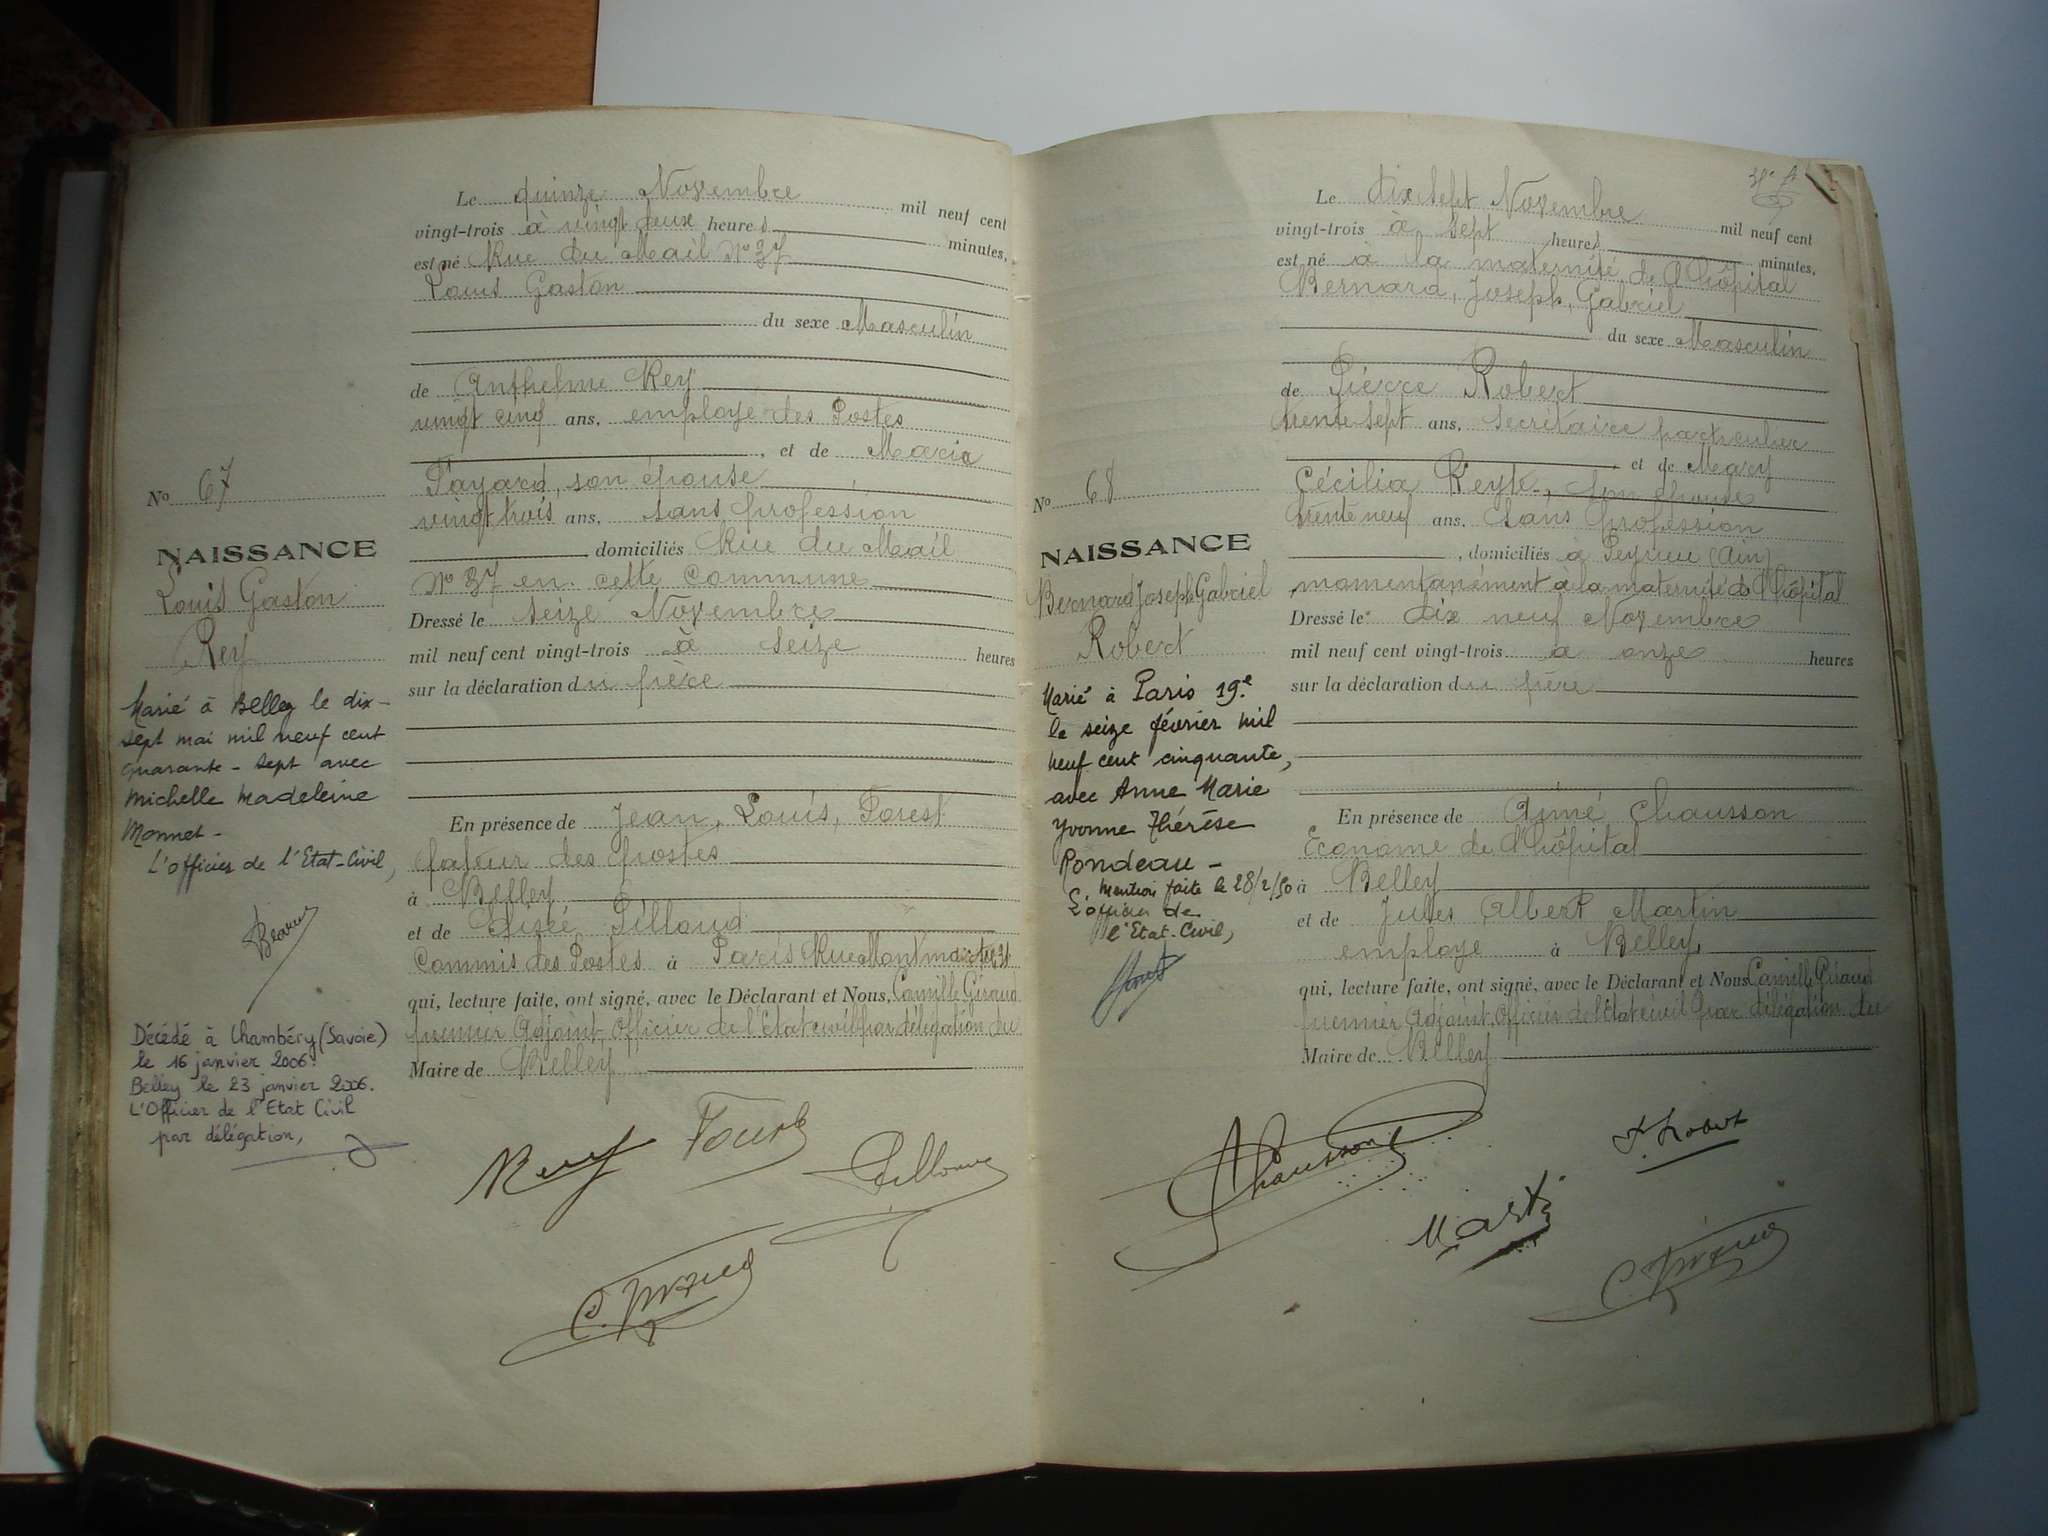 Le quinze Novembre mil neuf cent
vingt-trois à vingt deux heures minutes,
est né Rue du Mail N° 37
Louis Gaston
du sexe Masculin
de Anthelme Rey
vingt cinq ans, employé des Postes
, et de Maria
Payard, son épouse
vingt trois ans, sans profession
domiciliés Rue du Mail
N° 37 en cette commune
Dressé le seize Novembre
mil neuf cent vingt-trois à seize heures
sur la déclaration du père
En présence de Jean, Louis, Forest
facteur des postes
à Belley
et de Elisée Pilloud
Commis des Postes à Paris Rue Montmartre
qui, lecture faite, ont signé, avec le Déclarant et Nous, Camille Giraud
premier Adjoint, Officier de l'Etat civil par délégation du
Maire de Belley
N° 67
NAISSANCE
Louis Gaston
Rey
Marié à Belley le dix-
sept mai mil neuf cent
quarante-sept avec
Michelle Madeleine
Monnet-
L'officier de l'Etat-Civil,
Décédé à Chambéry (Savoie)
le 16 janvier 2006.
Belley le 23 janvier 2006.
L'Officier de l'Etat Civil
par délégation,
Rey
C. Giraud
Le dix sept Novembre mil neuf cent
vingt-trois à sept heures minutes,
est né à la maternité de l'hôpital
Bernard, Joseph, Gabriel
du sexe Masculin
de Pierre Robert
trente sept ans, secrétaire particulier
et de Mary
Cécilia, son épouse
trente neuf ans, sans profession
, domiciliés à Peyrieu (Ain)
momentanément à la maternité de l'hôpital
Dressé le dix neuf Novembre
mil neuf cent vingt-trois à onze heures
sur la déclaration du père
En présence de Aimé Chausson
Econome de l'hôpital
à Belley
et de Jules Albert Martin
employé à Belley
qui, lecture faite, ont signé, avec le Déclarant et Nous Camille Giraud
premier Adjoint, Officier de l'Etat civil par délégation du
Maire de Belley
N° 68
NAISSANCE
Bernard Joseph Gabriel
Robert
Marié à Paris 19e
le seize février mil
neuf cent cinquante,
avec Anne Marie
Yvonne Thérèse
Rondeau -
Mention faite le 28/2/50
L'officier de
l'Etat-Civil,
Chausson
P. Robert
Martin
C. Giraud